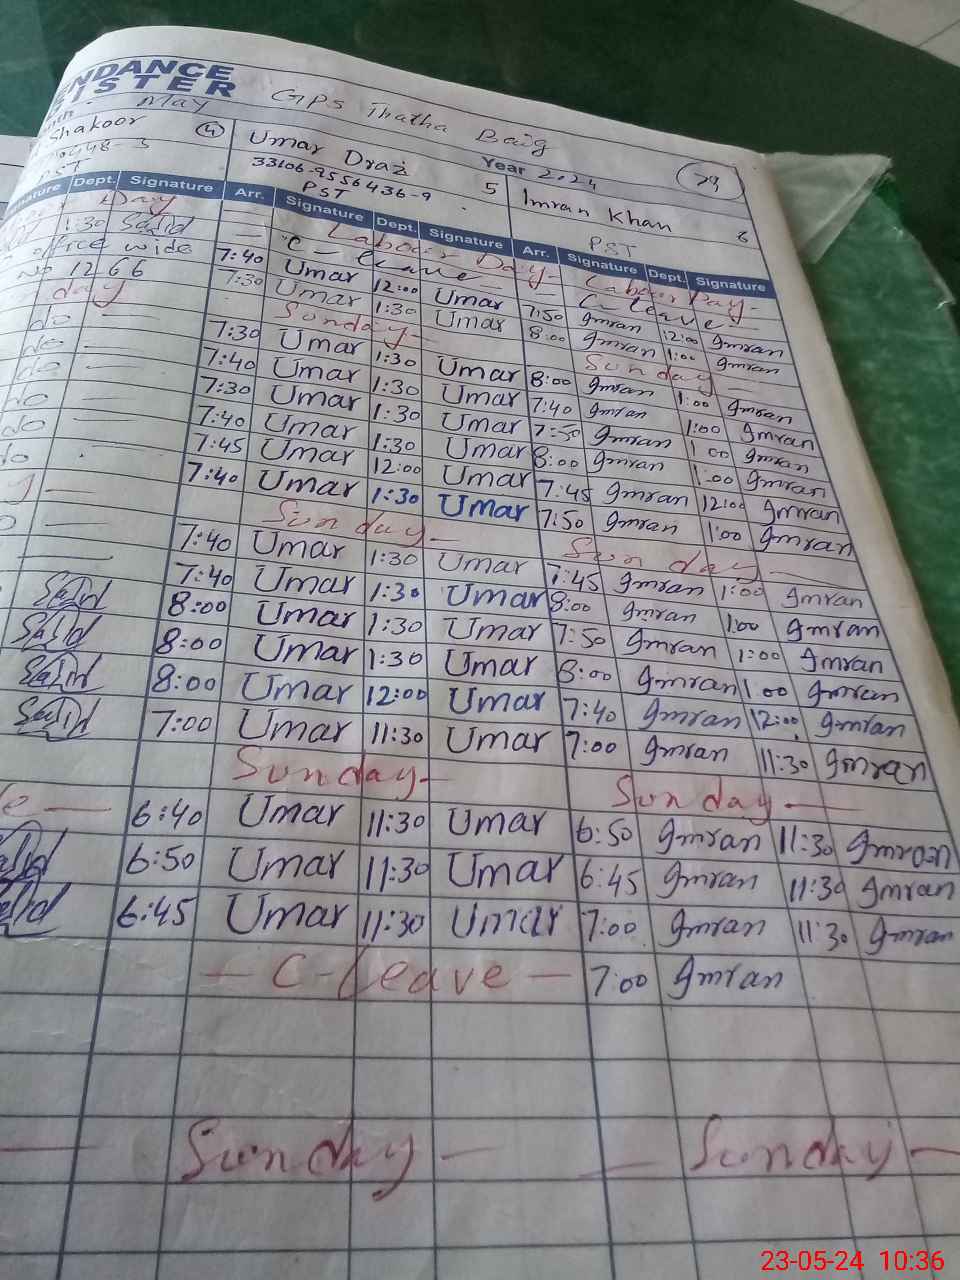 NDANCE
ISTER
May
GPS Thatha Baig
Year 2024
29
Shakoor
4
Umar Draz
5
Imran Khan
6
33106-9556436-9
PST
PST
PST
Dept. Signature Arr. Signature Dept. Signature Arr. Signature Dept. Signature
Day
Labour Day
Labour Day
1:30 Sajid
C-leave
C-leave
office wide
7:40 Umar 12:00 Umar 7:50 Imran 12:00 Imran
No 1266
7:30 Umar 1:30 Umar 8:00 Imran 1:00 Imran
day
Sunday
Sunday
do
7:30 Umar 1:30 Umar 8:00 Imran 1:00 Imran
do
7:40 Umar 1:30 Umar 7:40 Imran 1:00 Imran
do
7:30 Umar 1:30 Umar 7:50 Imran 1 00 Imran
do
7:40 Umar 1:30 Umar 8:00 Imran 1:00 Imran
do
7:45 Umar 12:00 Umar 7:45 Imran 12:00 Imran
7:40 Umar 1:30 Umar 7:50 Imran 1:00 Imran
Sunday
Sunday
7:40 Umar 1:30 Umar 7:45 Imran 1:00 Imran
7:40 Umar 1:30 Umar 8:00 Imran 1:00 Imran
Sajid 8:00 Umar 1:30 Umar 7:50 Imran 1:00 Imran
Sajid 8:00 Umar 1:30 Umar 8:00 Imran 1 00 Imran
Sajid 8:00 Umar 12:00 Umar 7:40 Imran 12:00 Imran
Sajid 7:00 Umar 11:30 Umar 7:00 Imran 11:30 Imran
Sunday
Sunday
6:40 Umar 11:30 Umar 6:50 Imran 11:30 Imran
6:50 Umar 11:30 Umar 6:45 Imran 11:30 Imran
6:45 Umar 11:30 Umar 7:00 Imran 11:30 Imran
C-Leave 7:00 Imran
Sunday
Sunday
23-05-24 10:36